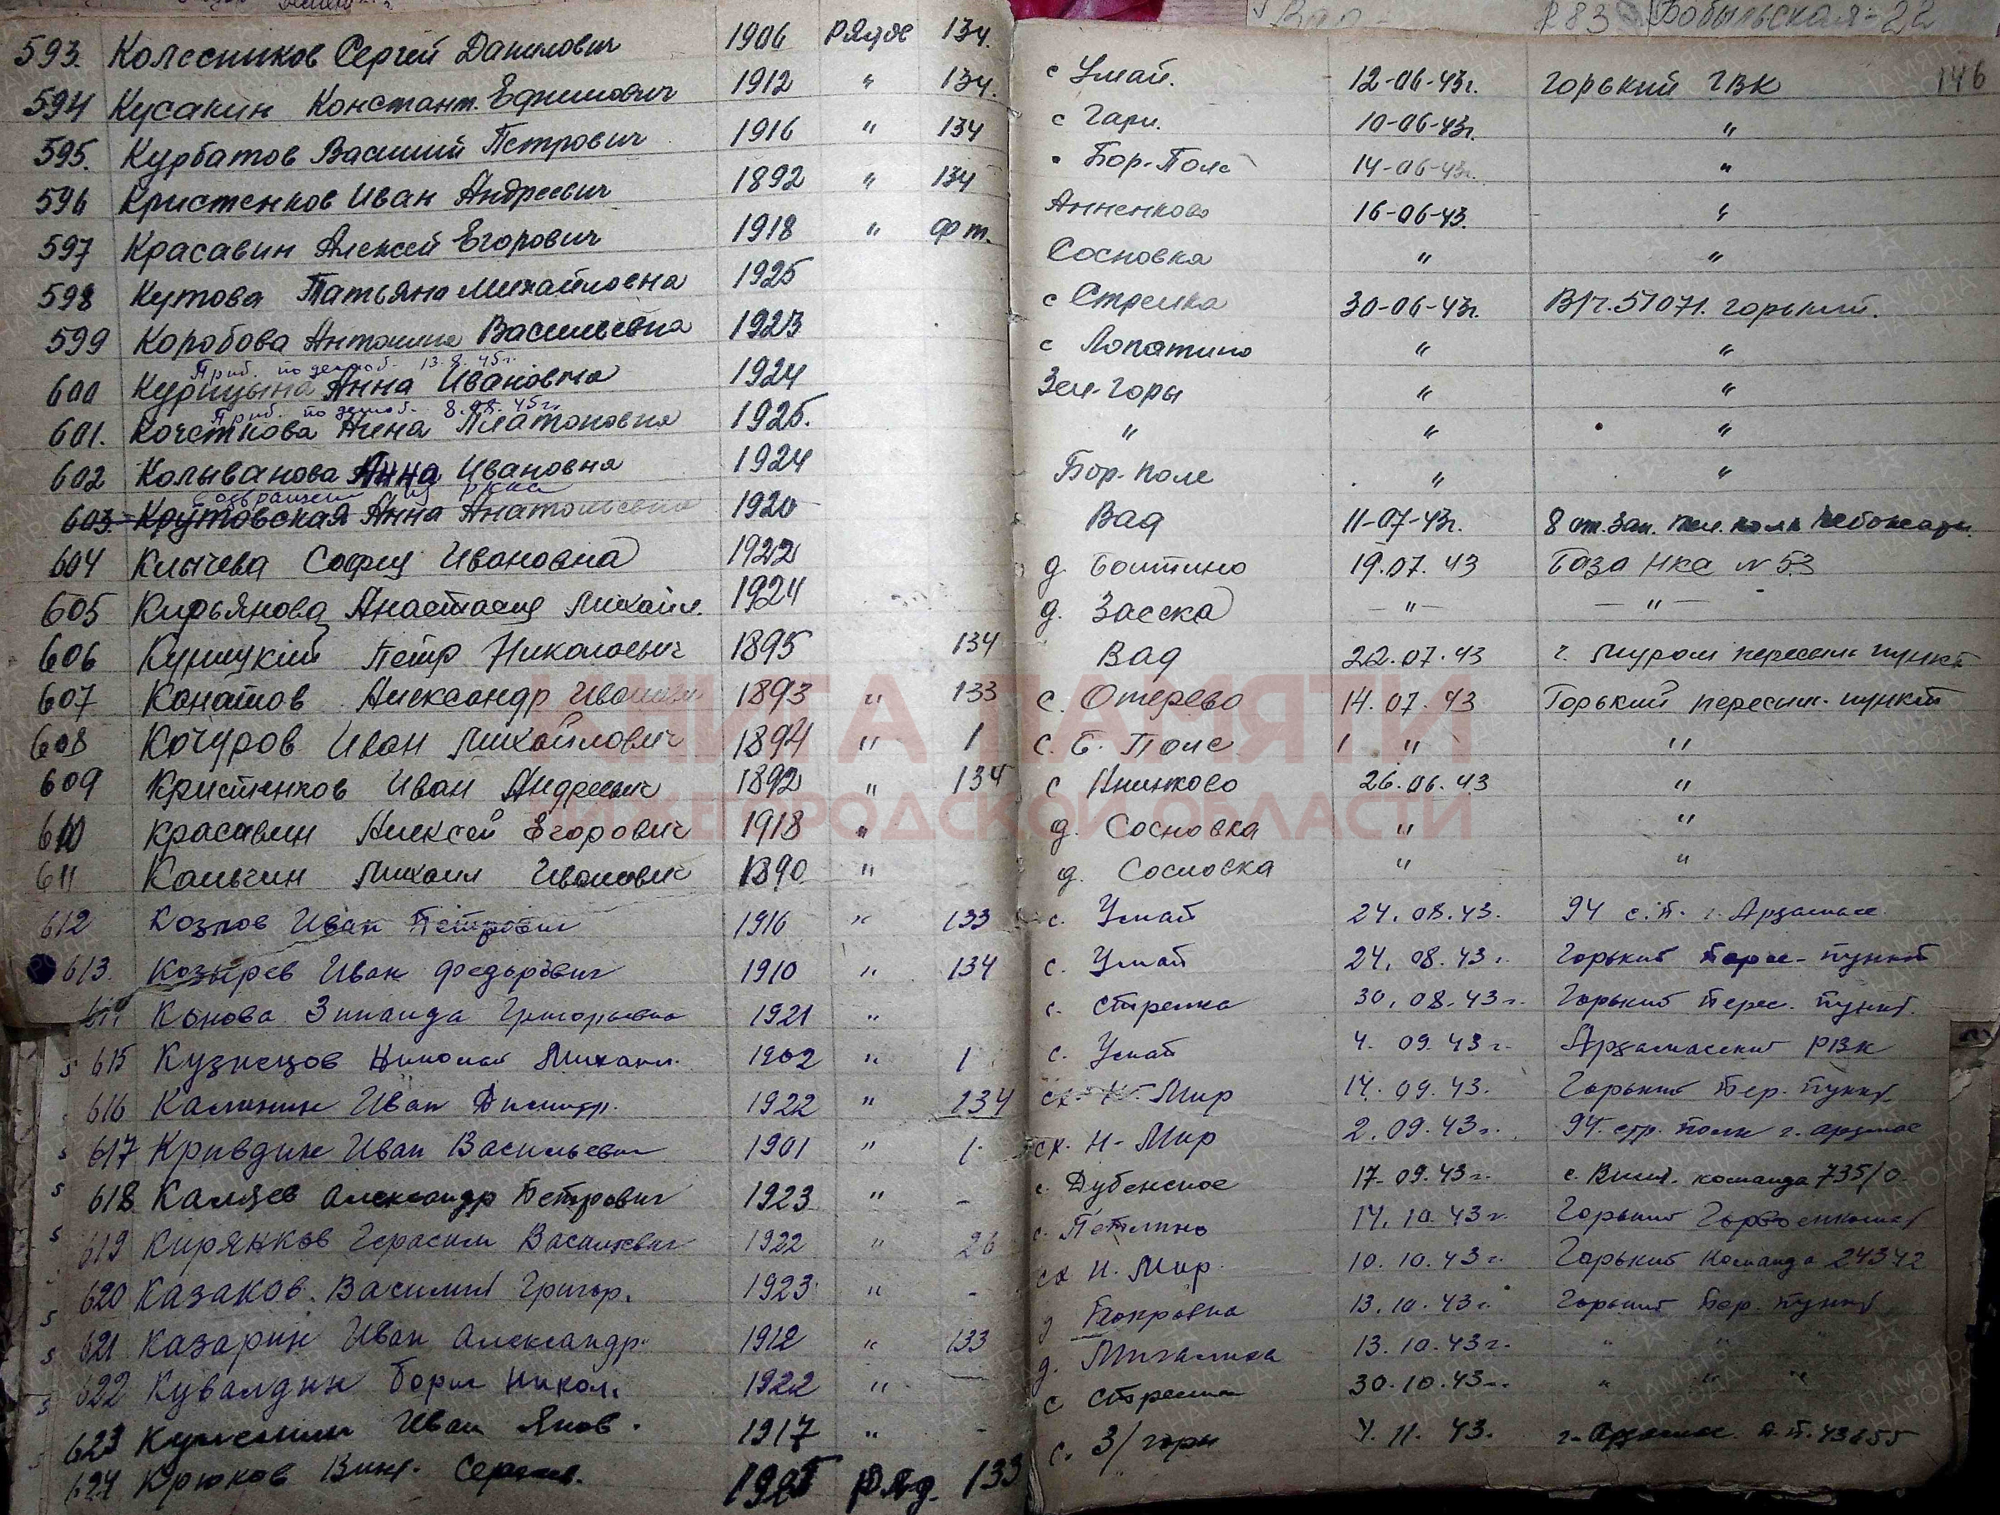 593. Колесников Сергей Данилович 1906 рядов 134. с Умай. 12-06-43г. Горький ГВК 146
594 Кусакин Констант. Ефимович 1912 " 134. с Гари. 10-06-43г. "
595. Курбатов Василий Петрович 1916 " 134 Бор-Поле 14-06-43г. "
596 Кристенков Иван Андреевич 1892 " 134 Анненково 16-06-43. "
597 Красавин Алексей Егорович 1918 " ф т. Сосновка " "
598 Кутова Татьяна Михайловна 1925 с Стрелка 30-06-43г. В/ч. 51071. Горький.
599 Коробова Антонина Васильевна 1923 с Лопатино " "
Приб. по демоб. 13.8.45г.
600 Курицына Анна Ивановна 1924 Зел-Горы " "
Приб. по демоб. 8.08.45г.
601. Нина Платоновна 1925. " " "
602 Колыванова Анна Ивановна 1924 Бор-поле " "
возвращена из РККА
603. Крутовская Анна Анатольевна 1920 Вад 11-07-43г. 8 от. зап.
604 Клычева София Ивановна 1922 д. 19.07.43 База НКО №53
605 Кирьянова Анастасия Михайл. 1924 д. Засека — " — — " —
606 Петр Николаевич 1895 134 Вад 22.07.43 г. Муром пересыл. пункт
607 Конатов Александр Иванович 1893 " 133 с. Отерево 14.07.43 Горький пересыл. пункт
608 Кочуров Иван Михайлович 1894 " 1 с. Б. Поле " "
609 Кристенков Иван Андреевич 1892 " 134 с Аненково 26.06.43 "
610 Красавин Алексей Егорович 1918 " д. Сосновка " "
611 Калычин Михаил Иванович 1890 " д. Сосновка " "
612 Козлов Иван Петрович 1916 " 133 с. Умай 24.08.43. 94 с.п. г. Арзамас
613. Козырев Иван Федорович 1910 " 134 с. Умай 24.08.43г. Горький Перес. пункт
614 Конова Зинаида Григорьевна 1921 " с. Стрелка 30.08.43г. Горький Перес. пункт.
615 Кузнецов Николай Михаил. 1902 " 1 с. Умай 4.09.43г. Арзамасский РВК
616 Калинин Иван Дмитр. 1922 " 134 Н-Мир 14.09.43. Горький Пер. пункт.
617 Кривдин Иван Васильевич 1901 " 1. ск. Н-Мир 2.09.43г. 94. стр. полк г. Арзамас
618 Каляев Александр Петрович 1923 " - с. Дубенское 17-09.43г. команда 735/0
619 Кирянков Герасим Васильевич 1922 " 26 с. Петлино 14.10.43г. Горький
620 Казаков Василий Григор. 1923 " - ск Н. Мир 10.10.43г. Горький Команда 24342
621 Казарин Иван Александр. 1912 " 133 д Покровка 13.10.43г. Горький Пер. пункт
622 Кувалдин Борис Никол. 1922 " д. Михалиха 13.10.43г. " " "
623 Иван Яков. 1917 " - с Стрелка 30.10.43г. " " "
624 Крюков Сергеев. 1925 ряд. 133 с. З/горы 4.11.43. г. Арзамас п.п.
КНИГА ПАМЯТИ
НИЖЕГОРОДСКОЙ ОБЛАСТИ
ПАМЯТЬ НАРОДА